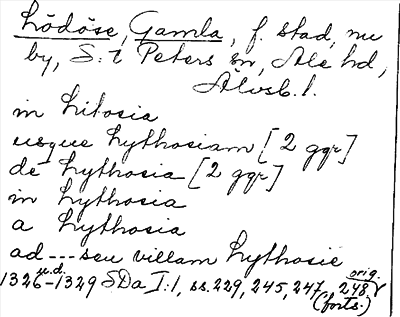 Lödöse, Gamla, f. stad, nu
by, S:t Peters sn, Ale hd,
Älvsb. l.
in Litosia
usque Lythosiam [2 ggr]
de Lythosia [2 ggr]
in Lythosia
a Lythosia
ad --- seu villam Lythosie
u.d. orig.
1326-1329 SDa I:1, ss. 229, 245, 247, 248
(forts.)